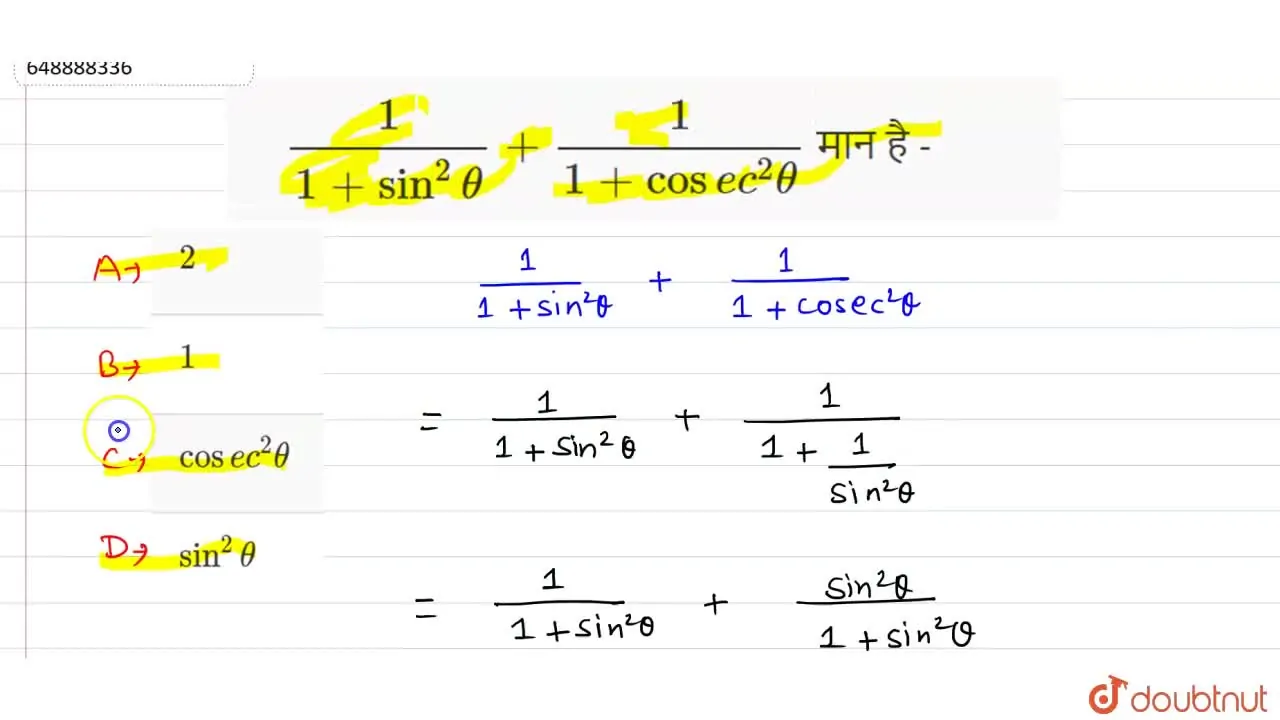 648888336
1/(1 + sin² θ) + 1/(1 + cos ec²θ) मान है -
A→ 2
B→ 1
C→ cos ec²θ
D→ sin² θ
1/(1 + sin²θ) + 1/(1 + cosec²θ)
= 1/(1 + sin²θ) + 1/(1 + 1/sin²θ)
= 1/(1 + sin²θ) + sin²θ/(1 + sin²θ)
doubtnut